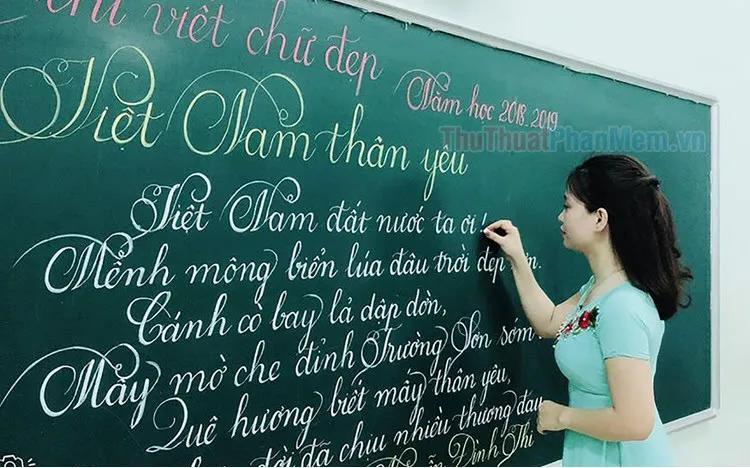 thi viết chữ đẹp
Năm học 2018-2019
Việt Nam thân yêu
ThuThuatPhanMem.vn
Việt Nam đất nước ta ơi!
Mênh mông biển lúa đâu trời đẹp hơn.
Cánh cò bay lả dập dờn,
Mây mờ che đỉnh Trường Sơn sớm
Quê hương biết mấy thân yêu,
đời đã chịu nhiều thương đau
Đình Thi